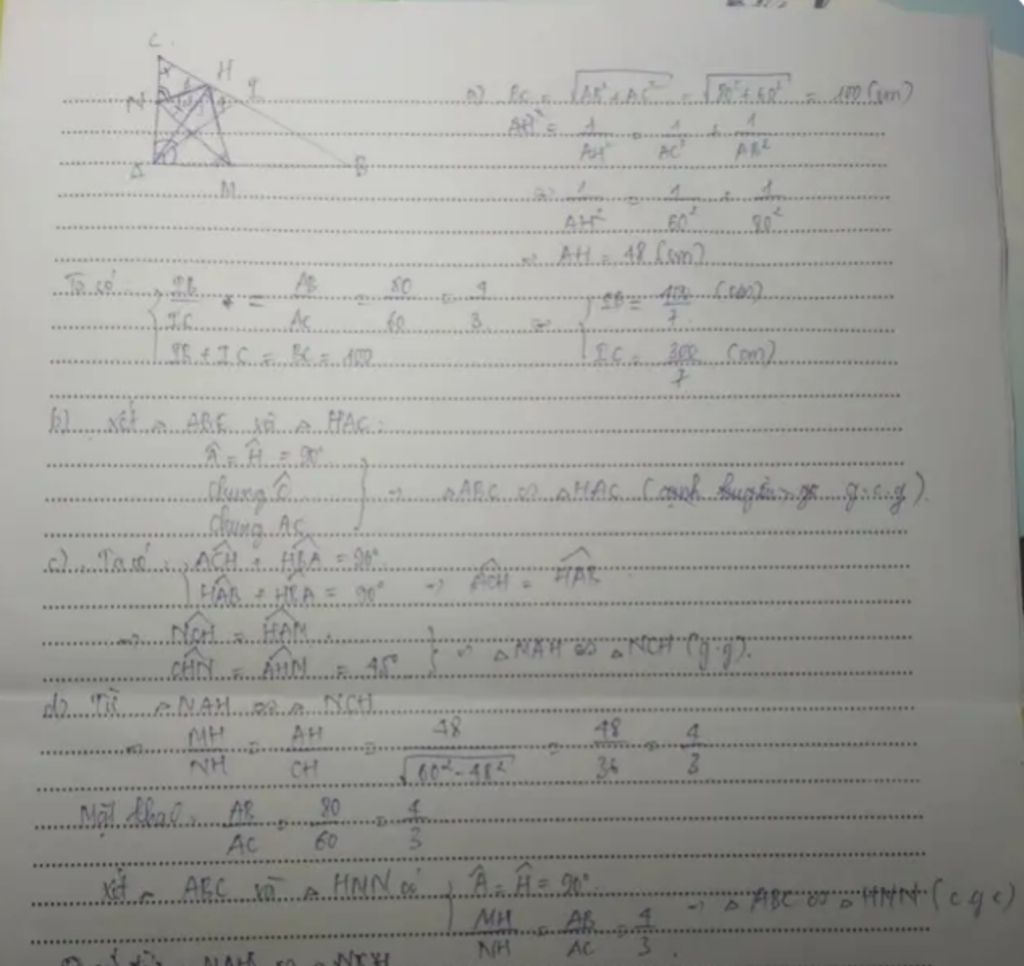 C
H
N
A
M
B
a) BC = √(AB² + AC²) = √(80² + 60²) = 100 (cm)
AH² = 1/AH² = 1/AC² + 1/AB²
=> 1/AH² = 1/60² + 1/80²
=> AH = 48 (cm)
Ta có: IB/IC = AB/AC = 80/60 = 4/3 => IB = 400/7 (cm)
IB + IC = BC = 100 IC = 300/7 (cm)
b) xét △ ABC và △ HAC:
Â = Ĥ = 90°
chung Ĉ => △ABC ∽ △HAC (cạnh huyền g.c.g)
chung AC
c) Ta có: ACH + HBA = 90°
HAB + HBA = 90° => ACH = HAB
=> NCH = HAM
CHN = AHM = 45° => △NAH ∽ △NCH (g.g).
d) Từ △NAH ∽ △NCH
=> MH/NH = AH/CH = 48/√(60² - 48²) = 48/36 = 4/3
Mặt khác: AB/AC = 80/60 = 4/3
xét △ ABC và △ HNN có Â = Ĥ = 90°
MH/NH = AB/AC = 4/3 => △ABC ∽ △HNN (c g c)
△NAH ∽ △NCH